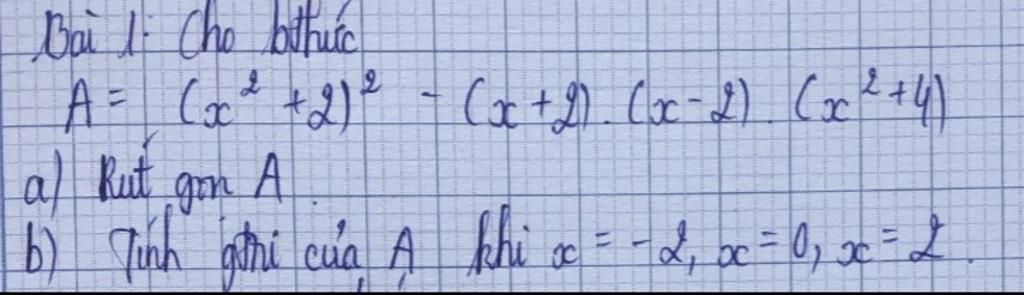 Bài 1: Cho bthức
A = (x² + 2)² - (x + 2) . (x - 2) . (x² + 4)
a) Rút gọn A.
b) Tính gtrị của A khi x = -2, x = 0, x = 2.